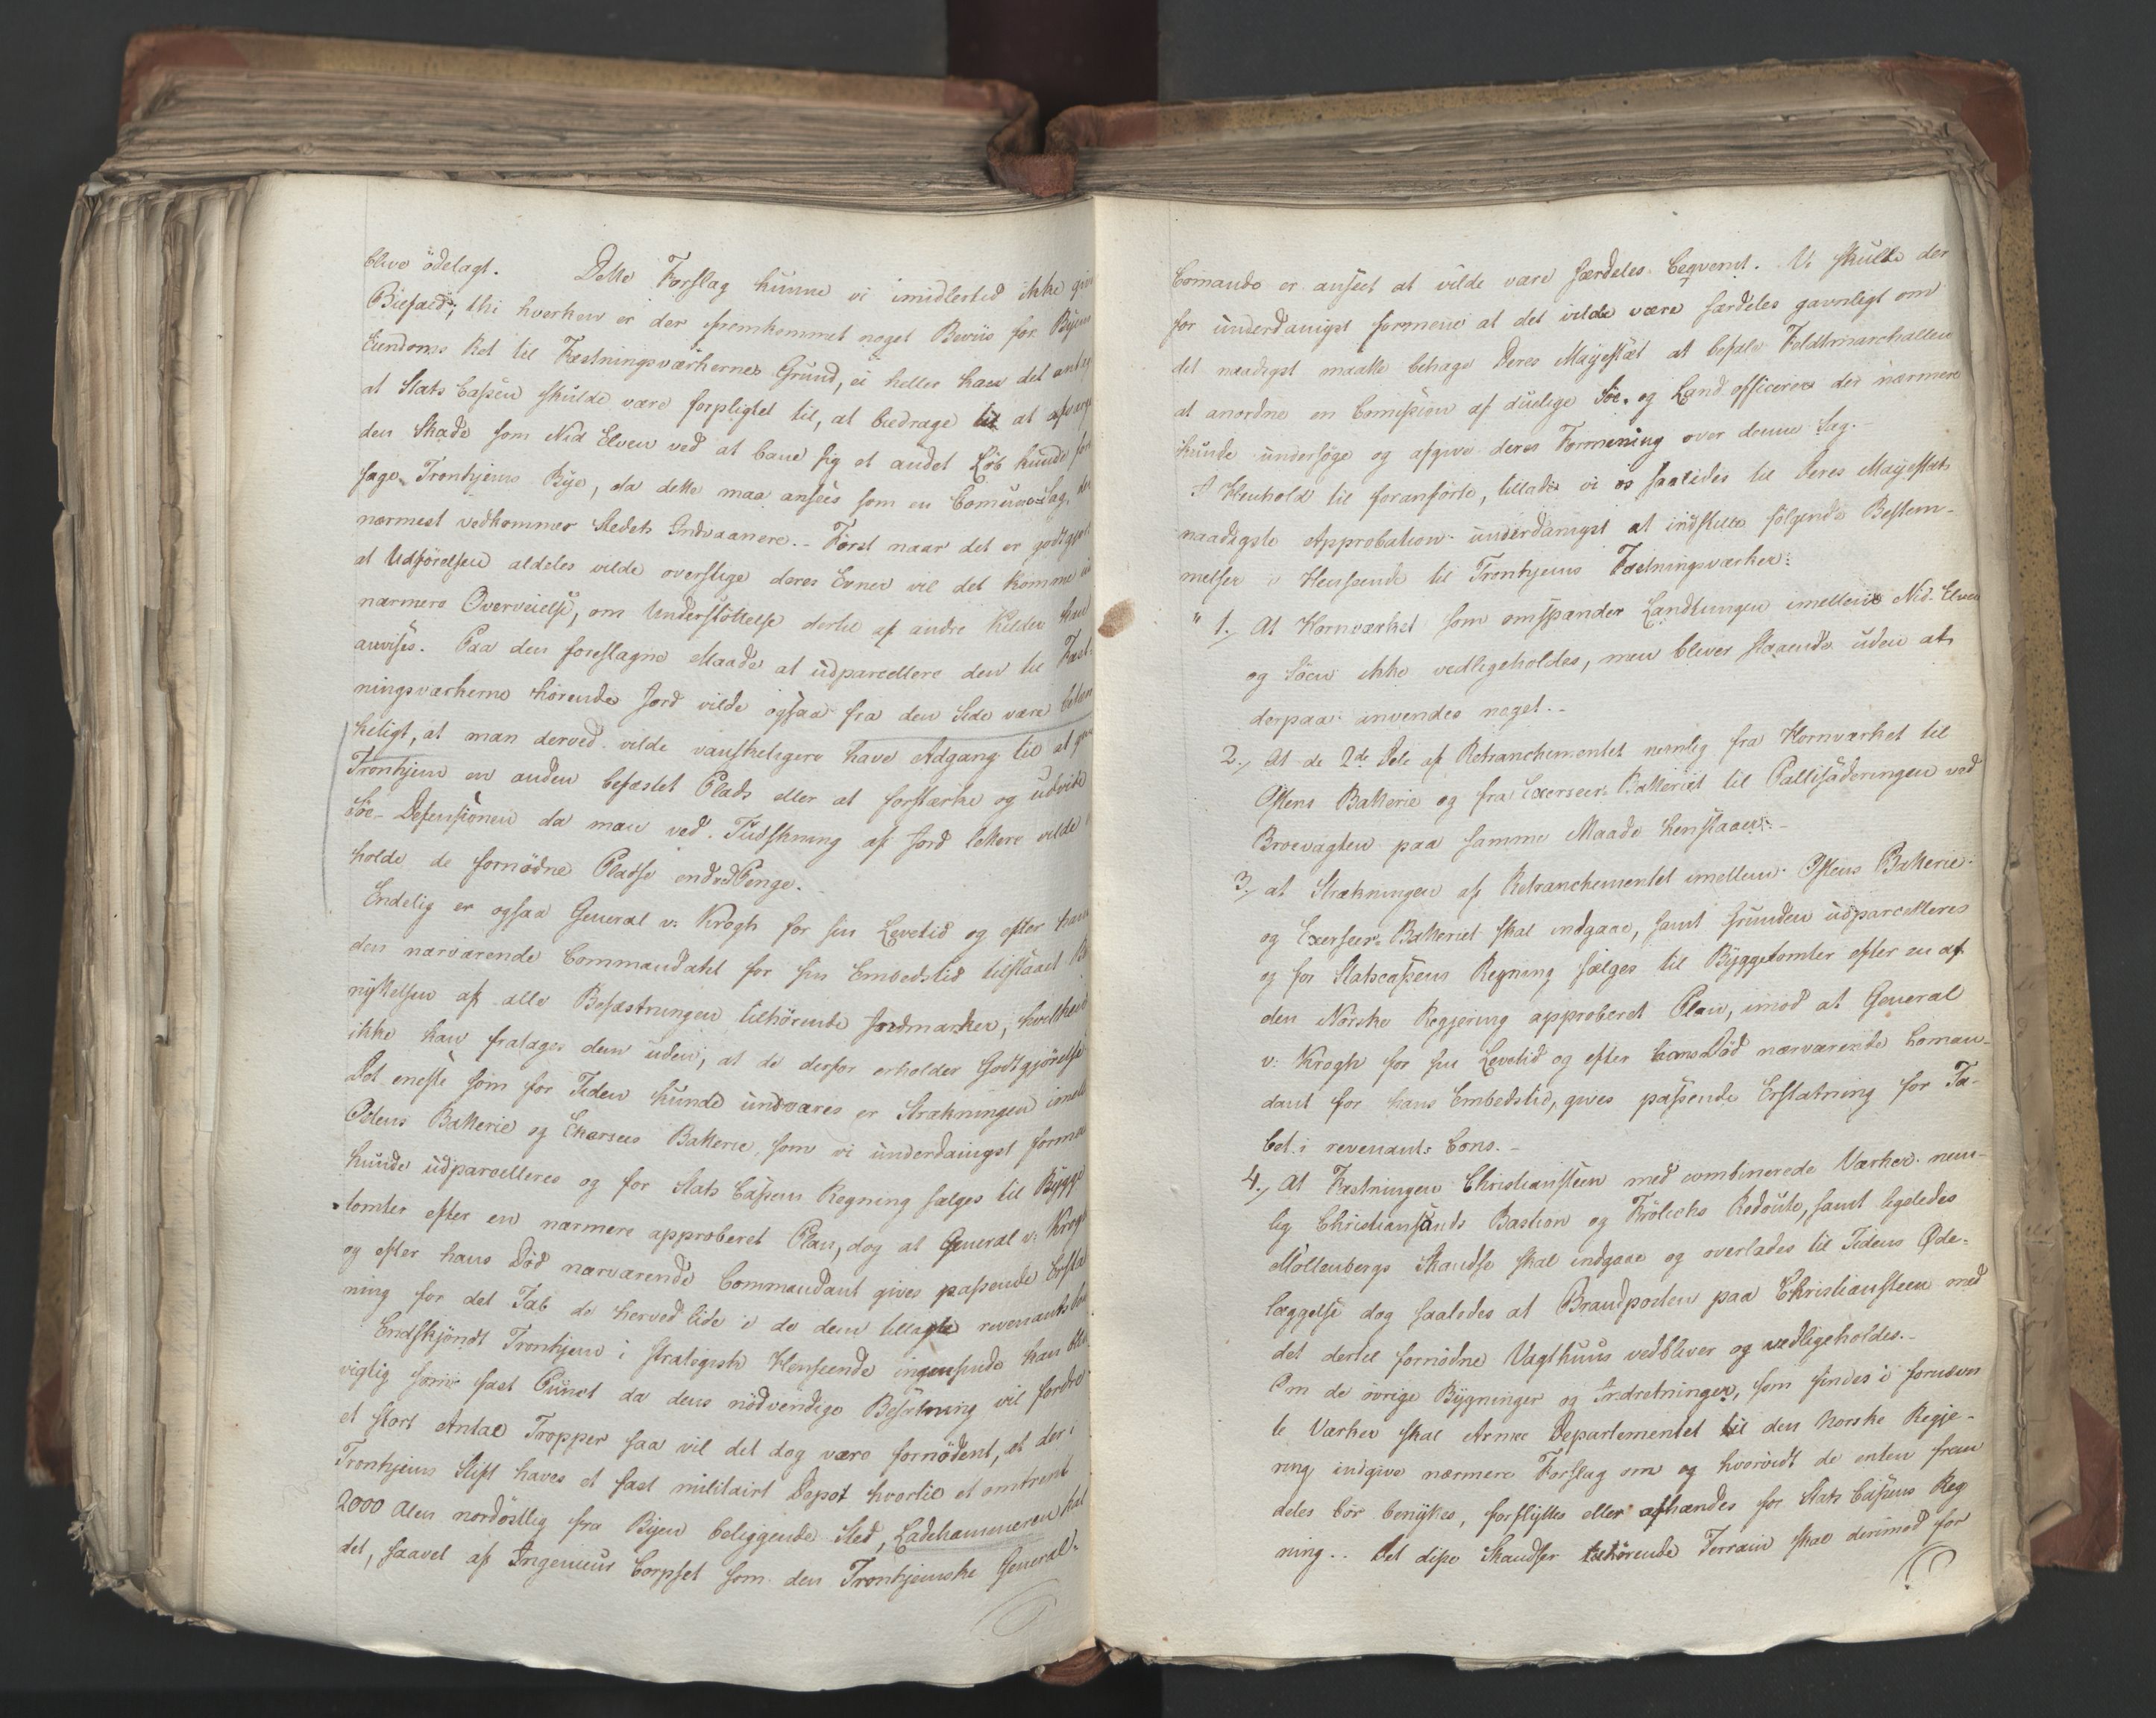 blive ödelagt. Dette Forslag kunne vi imidlertid ikke give
Biefald; thi hverken er der fremkommet noget Beviis for Byens
Eiendoms Ret til Fæstningsværkernes Grund, ei heller kan det antages
at Stats Cassen skulde være forpligtet til, at bidrage til at afværge
den Skade som Nid Elven ved at bane sig et andet Löb kunde for
sage Tronhjems Bye, da dette maa ansees som en Comune Sag, der
nærmest vedkommer Stedets Indvaanere. - Först naar det er godtgjort
at Udförelsen aldeles vilde overstige deres Evner vil det komme i
nærmere Overveielse, om Understöttelse dertil af andre Kilder kan
anvises. Paa den foreslagne Maade at udparcellere den til Fæst-
ningsværkerne hörende Jord vilde ogsaa fra den Side være betæn
keligt, at man derved vilde vanskeligere have Adgang til at give
Tronhjem en anden befæstet Plads eller at forstærke og udvide
Söe-Defensionen da man ved Tuskning af Jord lettere vilde
holde de fornödne Pladse end ved Penge.
Endelig er ogsaa General v: Krogh for sin Levetid og efter ham
den nærværende Commandant for sin Embedstid tilstaaet Be
nyttelsen af alle Befæstningen tilhörende Jordmarker, hvilket
ikke kan fratages dem uden, at de derfor erholder Godtgjörelse
Det eneste som for Tiden kunde undværes er Strækningen imell
Östens Batterie og Exerseer Batterie, som vi underdanigst formene
kunde udparcelleres og for Stats Cassens Regning sælges til Bygge
tomter efter en nærmere approberet Plan, dog at General v: Krogh
og efter hans Död nærværende Commandant gives passende Erstat
ning for det Tab de herved lide i de dem tillagte revenants bons
Endskjöndt Tronhjem i strategisk Henseende ingensinde kan blive
vigtig som fast Punct da dens nödvendige Besætning vil fordre
et stort Antal Tropper saa vil det dog være fornödent, at der i
Tronhjems Stift haves et fast militairt Depot hvortil et omtrent
2000 Alen nordöstlig fra Byen beliggende Sted, Ladehammeren kal
det, saavel af Ingenieur Corpset som den Tronhjemske General-
Comando er anseet at vilde være særdeles beqvemt. Vi skulde der
for underdanigst formene at det vilde være særdeles gavnligt om
det naadigst maatte behage Deres Mayestæt at befale Feldtmarchallen
at anordne en Comission af duelige Söe- og Land officerer der nærmere
kunde undersöge og afgive deres Formening over denne Sag. -
I Henhold til foranförte, tillade vi os saaledes til Deres Mayestæts
naadigste Approbation underdanigst at indstille fölgende Bestem-
melser i Henseende til Tronhjems Fæstningsværker:
" 1., At Hornværket som omspænder Landtungen imellem Nid-Elven
og Söen ikke vedligeholdes, men bliver staaende uden at
derpaa anvendes noget. -
2., At de 2de Dele af Retranchementet nemlig fra Hornværket til
Östens Batterie og fra Exerseer Batteriet til Pallisaderingen ved
Broevagten paa samme Maade henstaaer. -
3., at Strækningen af Retranchementet imellem Östens Batterie
og Exerseer Batteriet skal indgaae, samt Grunden udparcelleres
og for Statscassens Regning sælges til Byggetomter efter en af
den Norske Regjering approberet Plan, imod at General
v: Krogh for sin Levetid og efter hans Död nærværende Coman-
dant for hans Embedstid, gives passende Erstatning for Ta-
bet i revenant: bons. -
4., At Fæstningen Christiansteen med combinerede Værker nem-
lig Christiansands Bastion og Frölichs Redoute, samt ligeledes
Möllenbergs Skandse skal indgaae og overlades til Tidens Öde-
læggelse dog saaledes at Brandposten paa Christiansteen med
det dertil fornödne Vagthuus vedbliver og vedligeholdes. -
Om de övrige Bygninger og Indretninger, som findes i fornævn
te Værker skal Armee Departementet til den Norske Regje-
ring indgive nærmere Forslag om og hvorvidt de enten frem
deles bör benyttes, forflyttes eller afhændes for Stats Cassens Reg
ning.. Det disse Skandser tilhörende Terrain skal derimod for